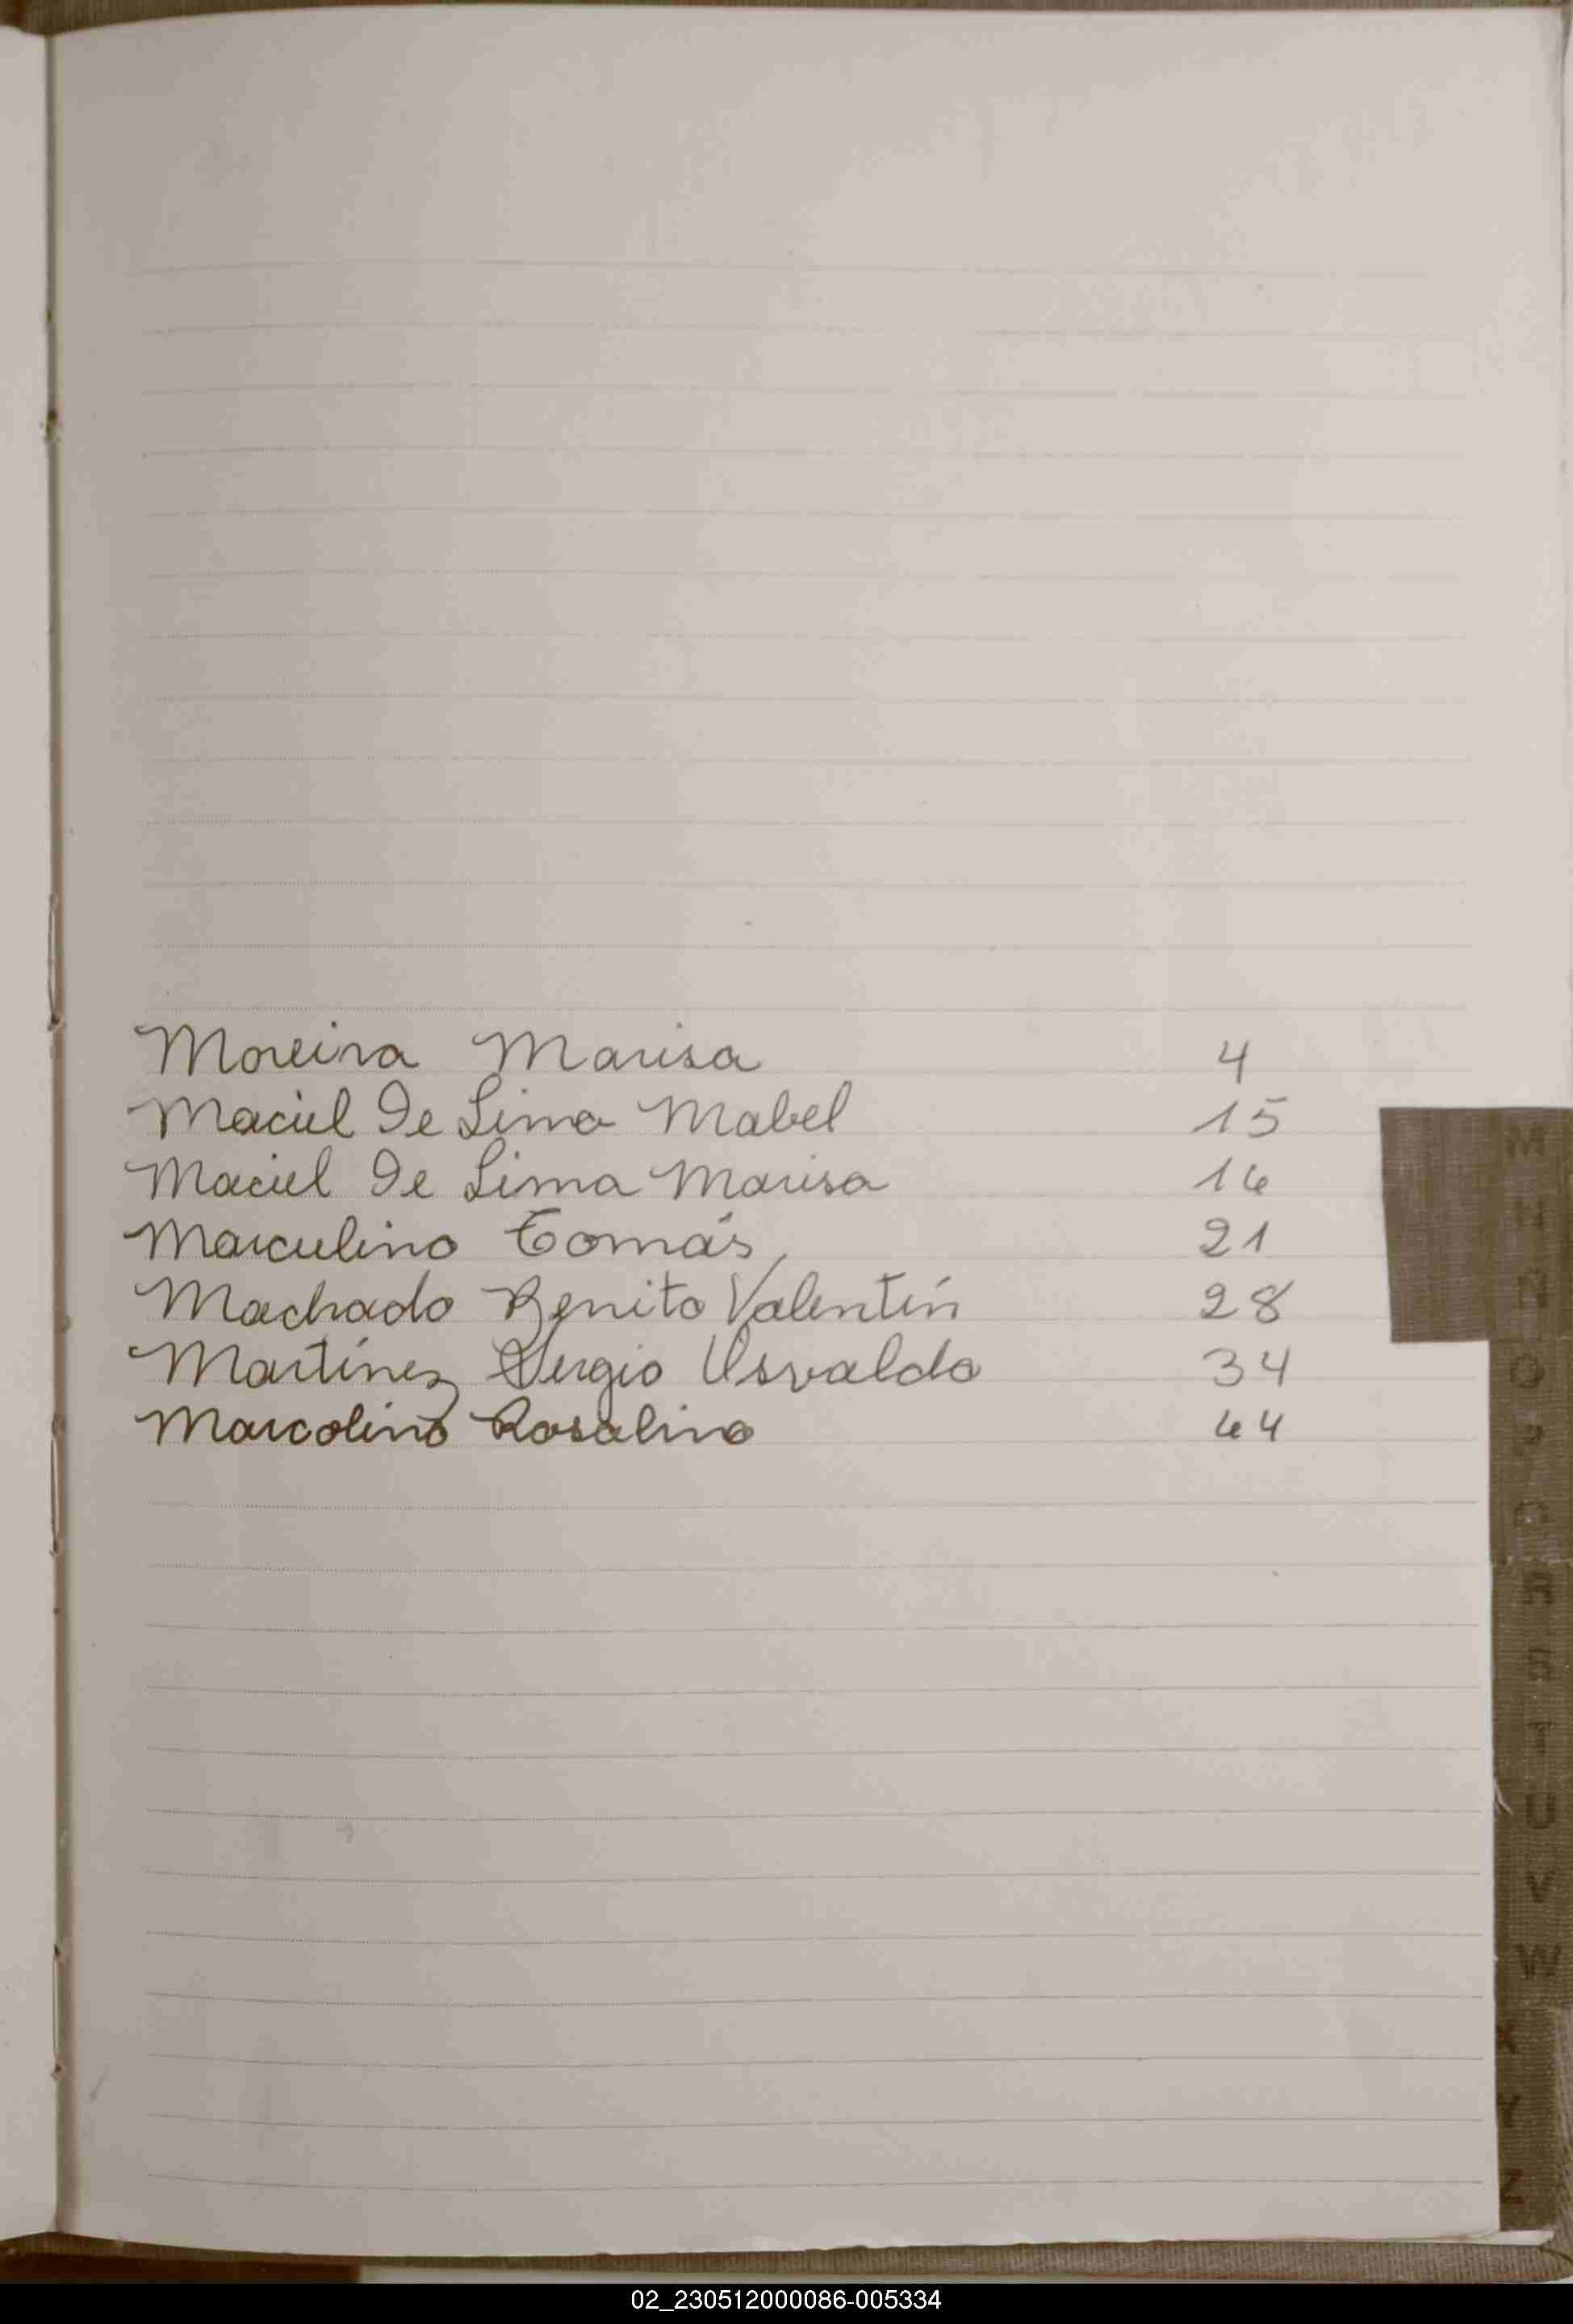 Moreira Marisa 4
Maciel De Lima Mabel 15
Maciel De Lima Marisa 16
Marculino Tomás 21
Machado Benito Valentín 28
Martínez Sergio Osvaldo 34
Marcolino Rosalino 44
M
N
Ñ
O
P
Q
R
S
T
U
V
W
X
Y
Z
02_230512000086-005334